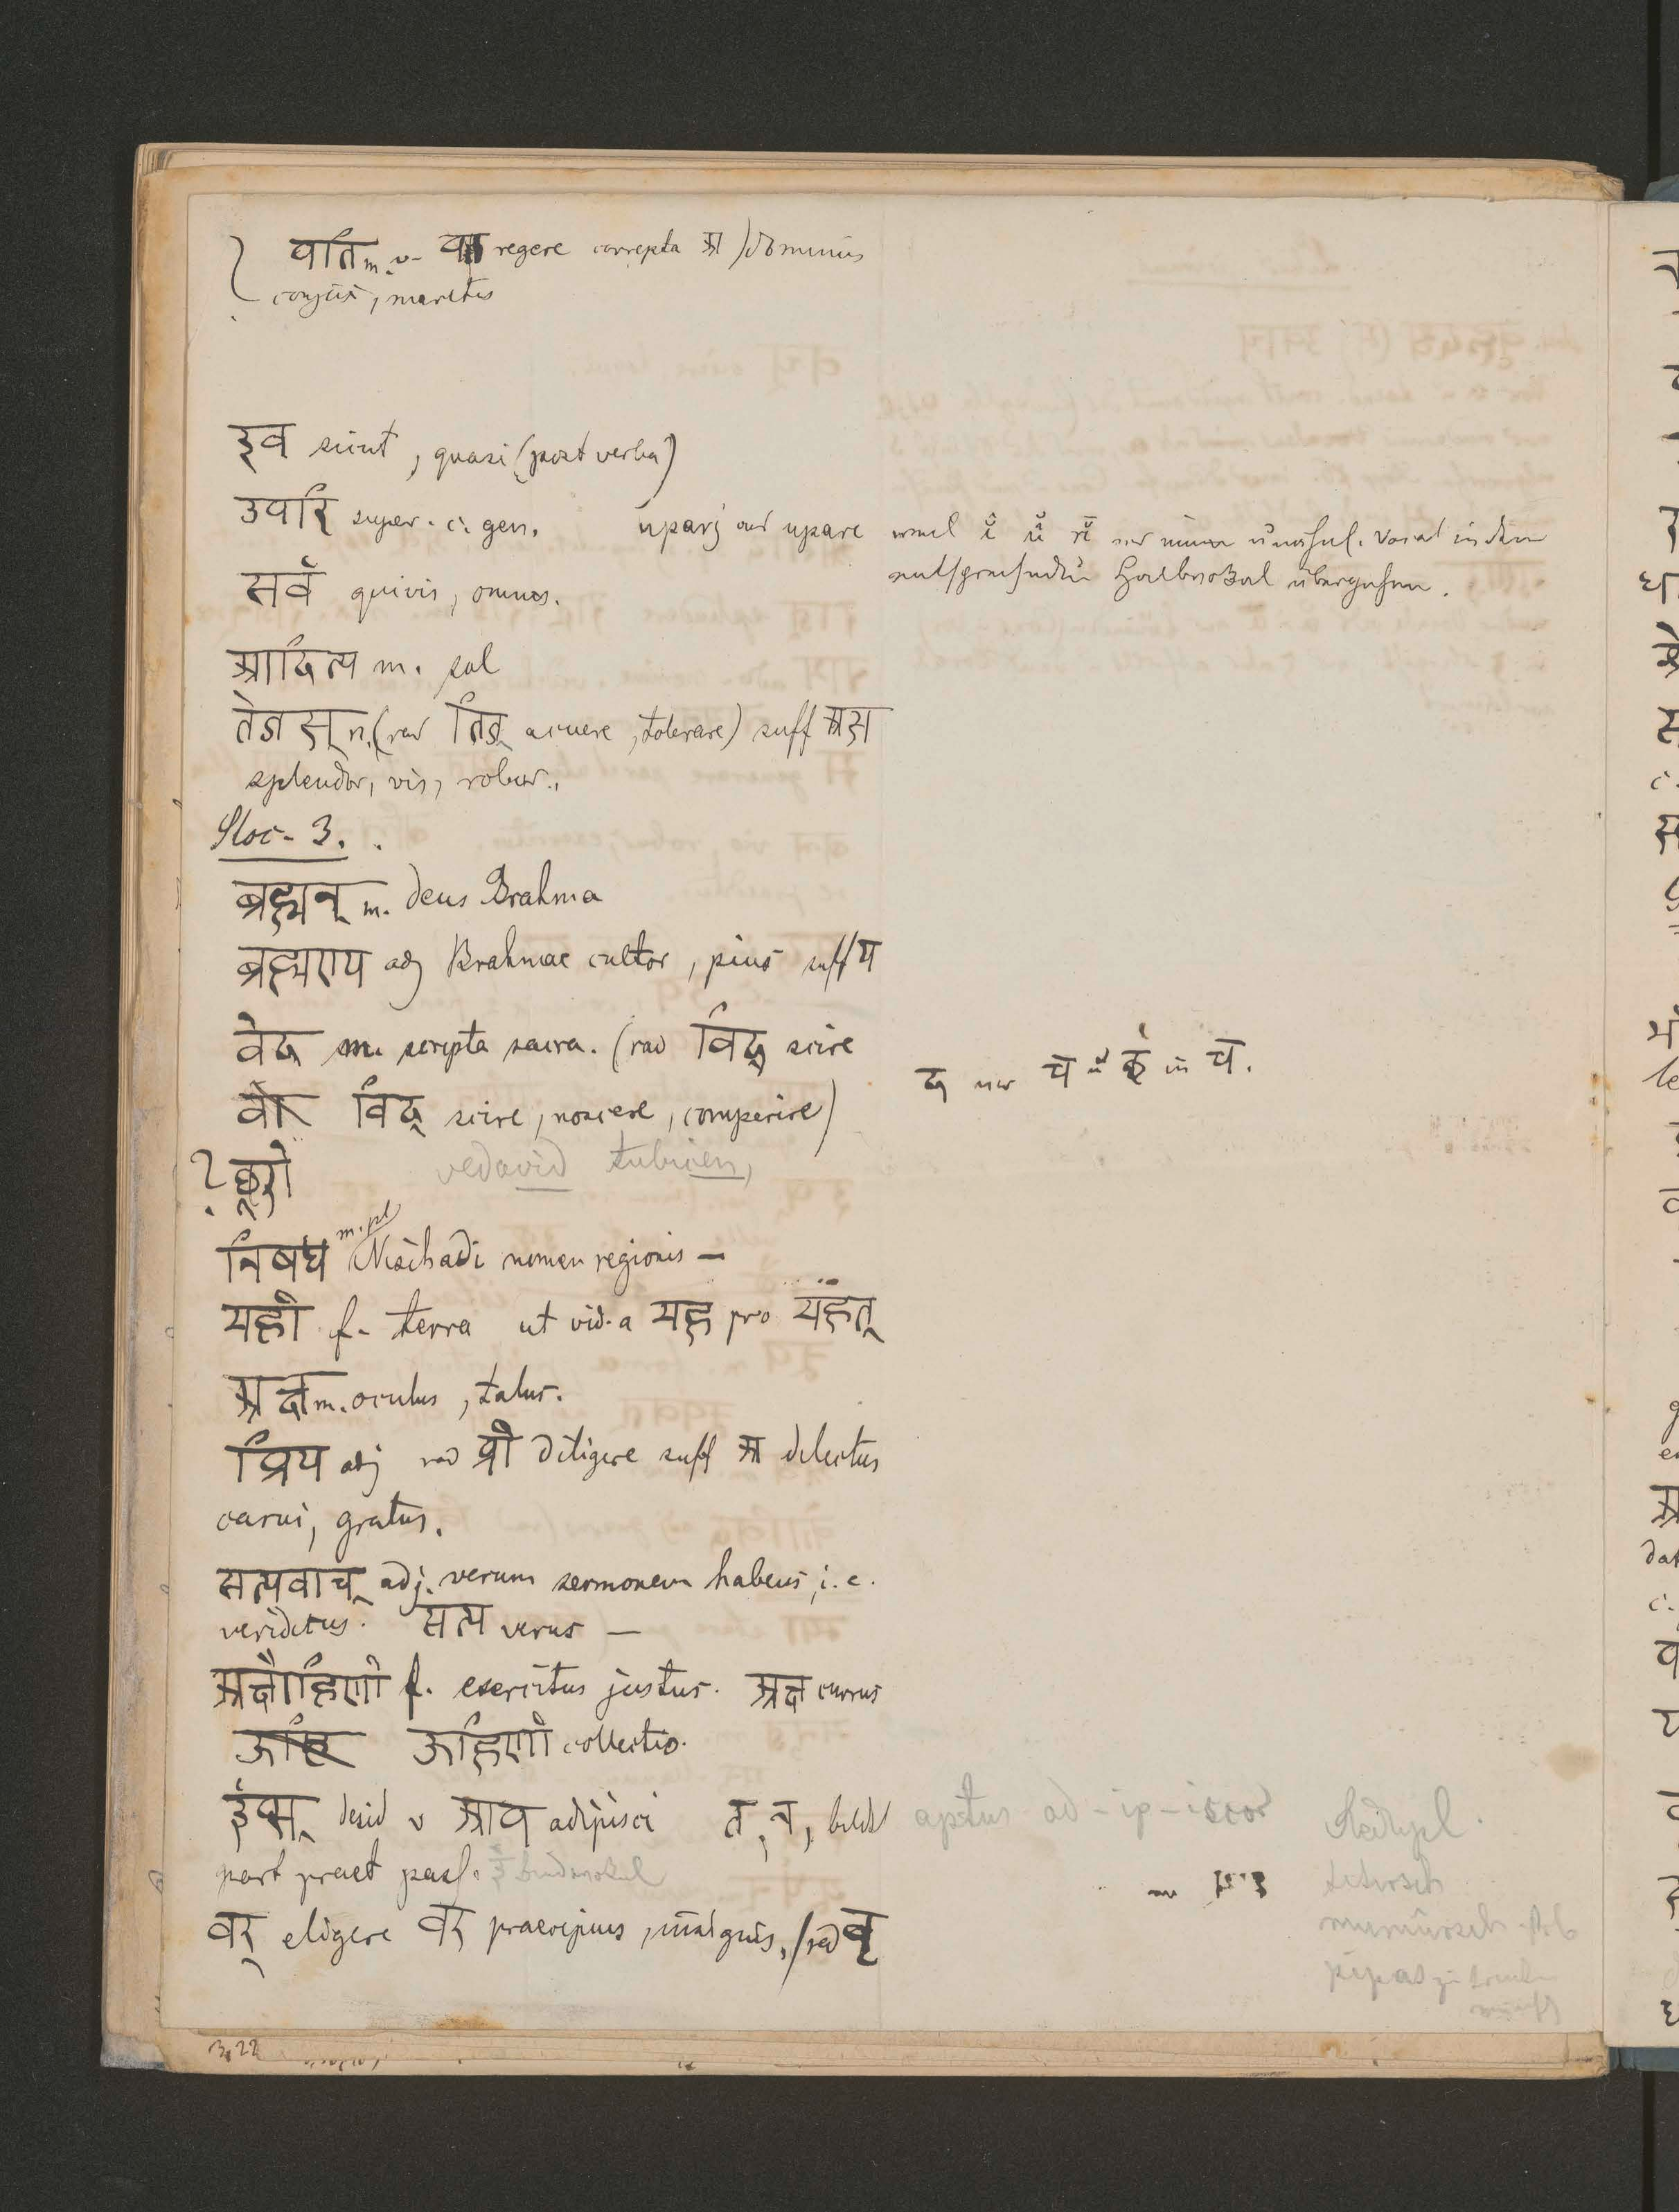 पति m. v. पा regere correpta अ) dominus
conjux, maritus
इव sicut, quasi (post verba)
उपरि super. c. gen. uparj aus upare weil ĭ ŭ ṛĭ vor einem unähnl. Vocal in den
entsprechenden Halbvokal übergehen.
सर्व quivis, omnes.
आदित्य m. sol
तेजस् n. (rad तिज् acuere, tolerare) suff अस
splendor, vis, robur.
Sloc. 3.
ब्रह्मन् m. deus Brahma
ब्रह्मण्य adj Brahmae cultor, pius suff य
वेद m. scripta sacra. (rad विद् scire
विद् scire, noscere, comperire)
vedavid
निषध m. pl Naishadi nomen regionis –
मही f. terra ut vid. a मह pro महत्
अक्ष m. oculus, talus.
प्रिय adj rad प्री diligere suff अ dilectus
carus, gratus.
सत्यवाच् adj. verum sermonem habens, i. e.
veridicus. सत्य verus –
अक्षौहिणी f. exercitus justus. अक्ष currus
ऊहिणी collectio.
ईप्स् desid v आप adipisci त, न, bildet aptus ad-ip-iscor
part praet pass.
वर् eligere वर praecipuus, insignis, (rad वृ
pipas
3.22